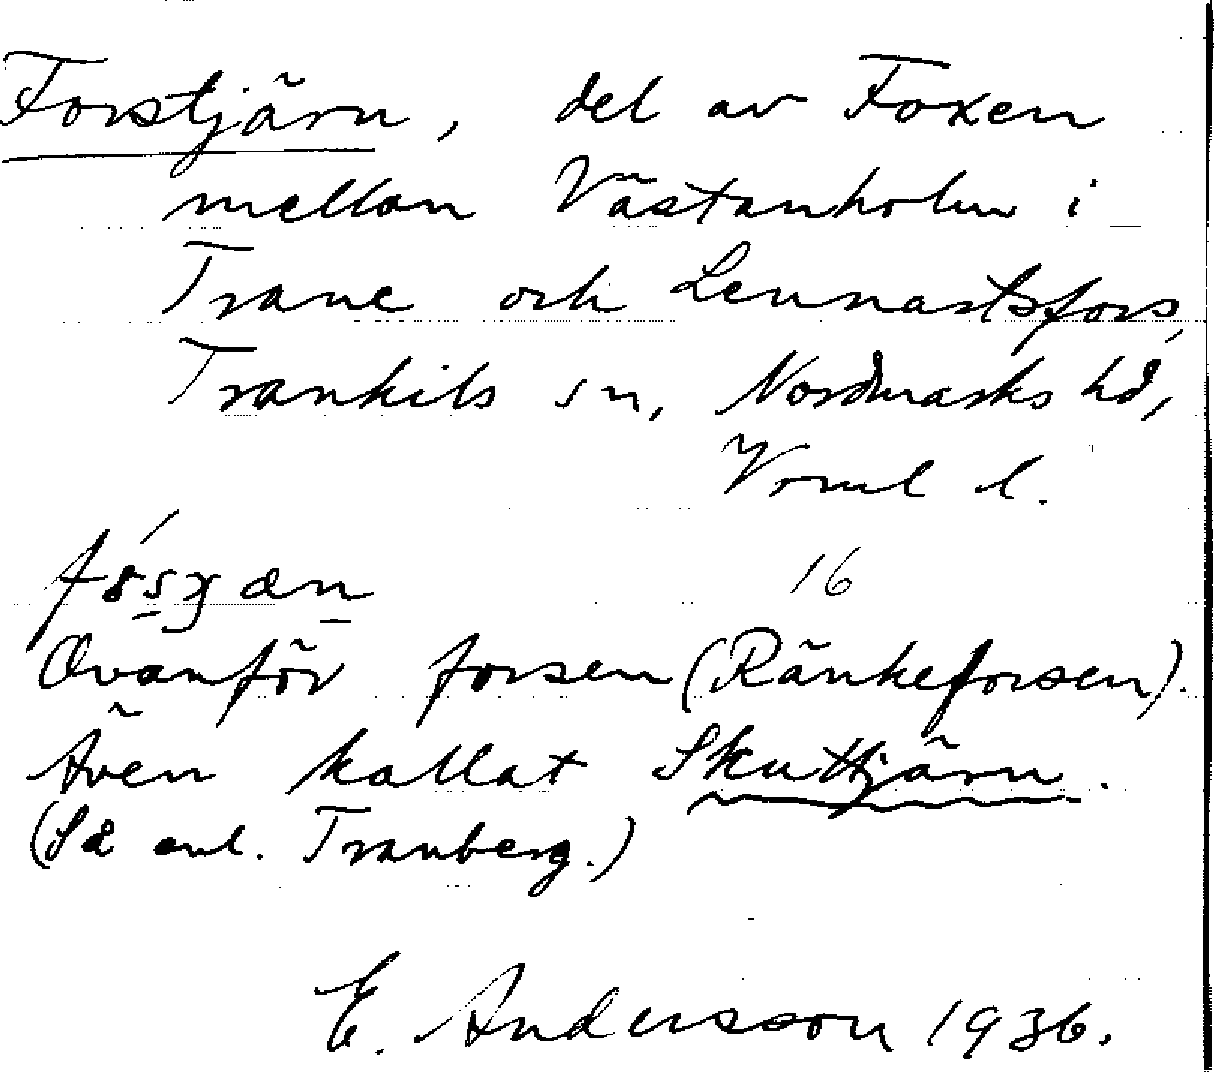 Forstjärn, del av Foxen
mellan Västanholm i
Trane och Lennartsfors,
Trankils sn, Nordmarks hd,
Vrml l.
16
Ovanför forsen (Ränkeforsen).
Även kallat Skuttjärn.
(Så enl. Tranberg.)
E. Andersson 1936.